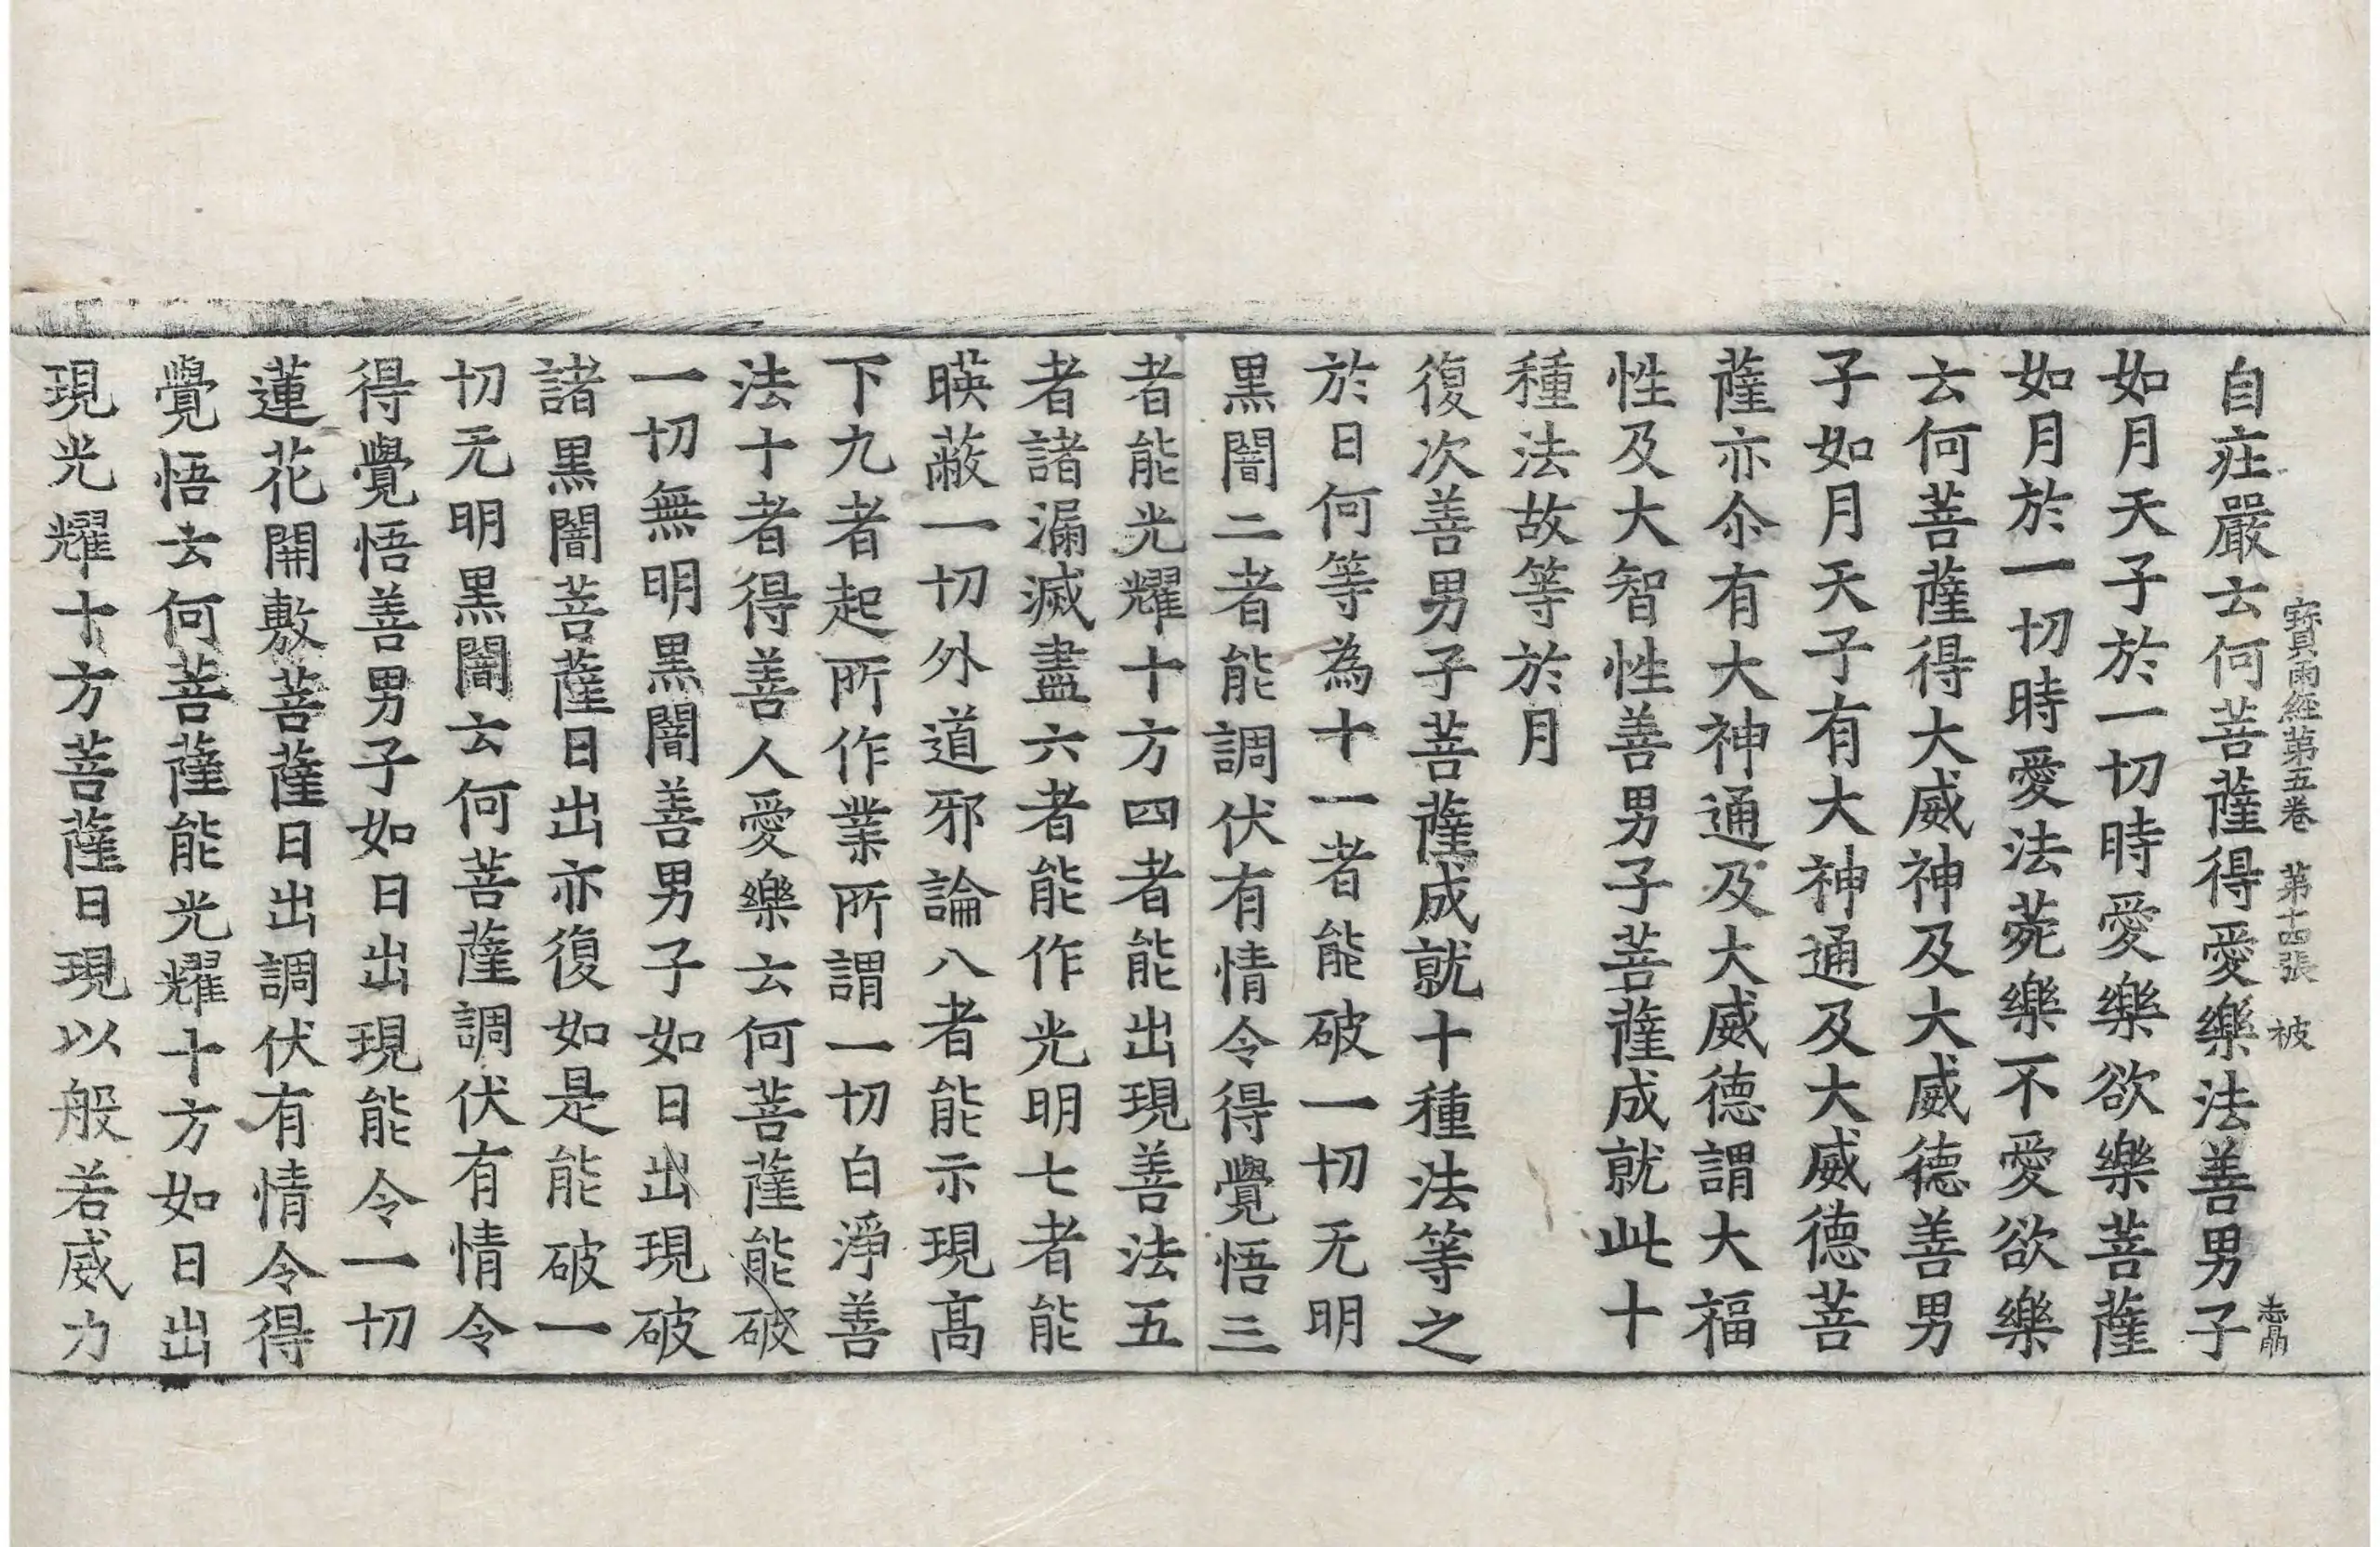 寳雨經第五卷　第十四張　被
自在嚴云何菩薩得愛樂法善男子
如月天子於一切時愛樂欲樂菩薩
如月於一切時愛法苑樂不愛欲樂
云何菩薩得大威神及大威德善男
子如月天子有大神通及大威德菩
薩亦尒有大神通及大威德謂大福
性及大智性善男子菩薩成就此十
種法故等於月
復次善男子菩薩成就十種法等之
於日何等為十一者能破一切无明
黒闇二者能調伏有情令得覺悟三
者能光耀十方四者能出現善法五
者諸漏滅盡六者能作光明七者能
暎蔽一切外道邪論八者能示現髙
下九者起所作業所謂一切白淨善
法十者得善人愛樂云何菩薩能破
一切無明黒闇善男子如日出現破
諸黒闇菩薩日出亦復如是能破一
切无明黒闇云何菩薩調伏有情令
得覺悟善男子如日出現能令一切
蓮花開敷菩薩日出調伏有情令得
覺悟云何菩薩能光耀十方如日出
現光耀十方菩薩日現以般若威力